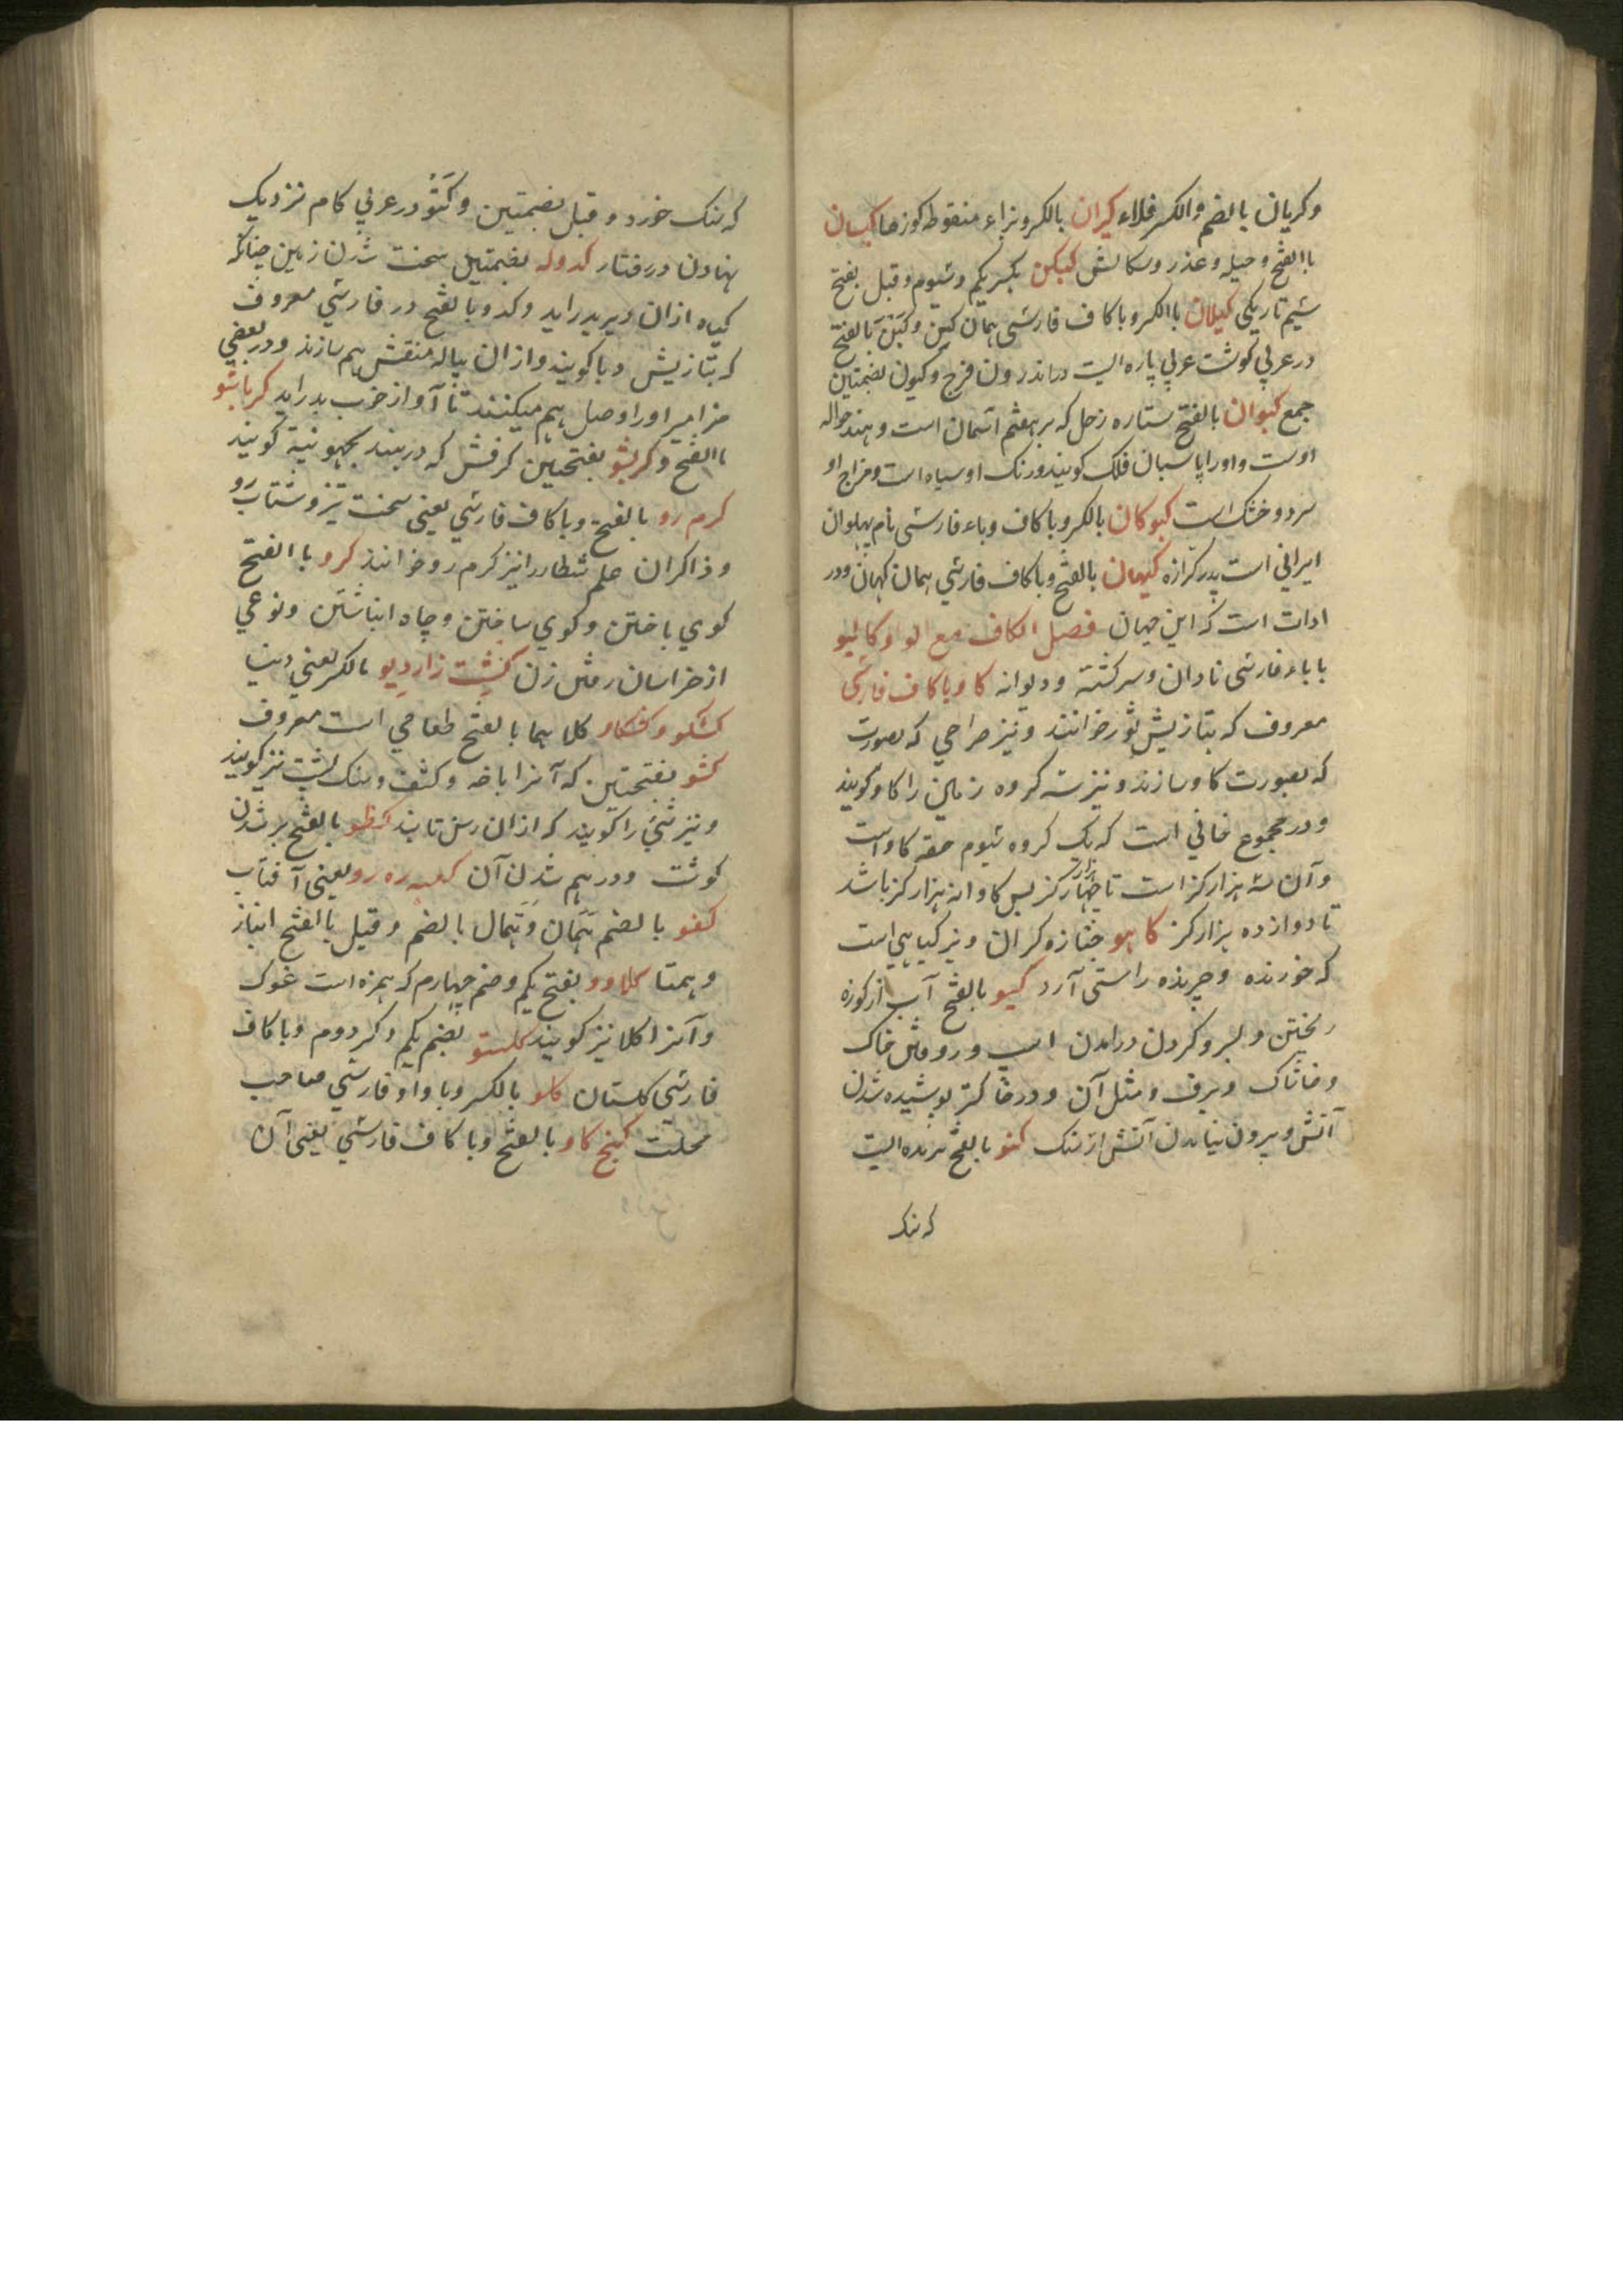 وکریان بالضم والکسر فلاء کیران بالکسر وبزاء منقوطه کوزها کیسان
باالفتح وحیله وغدر وسکالش کیکن بکسر یکم وسیوم وقیل بفتح
سیم تاریکی کیلان باالکسر وباکاف فارسی همان کین وکَیْن بالفتح
در عربی کوشت عربی پاره الیت در اندرون فرج وکیون بضمتین
جمع کیوان بالفتح ستاره زحل که بر هفتم اسمان است وهند حواله
اوست واورا پاسبان فلک کویند ورنک او سیاه است ومزاج او
سرد وخشک است کیوکان بالکسر وباکاف وباء فارسی نام پهلوان
ایرانی است پدر کرازه کیهان بالفتح وباکاف فارسی همان کهان ودر
ادات است که این جهان فصل الکاف مع الواو کالیو
باباء فارسی نادان وسرکشته ودیوانه کاو باکاف فارسی
معروف که بتازیش ثور خوانند ونیز صراحی که بصورت
که بصورت کاو سازند ونیز سه کروه زمین را کاو کویند
ودر مجموع خانی است که یک کروه سیوم حصه کاو است
وآن سه هزار کز است تا چهار هزار کز پس کاو از نه هزار کز باشد
تا دوازده هزار کز کاهو جنازه کران ونیز کیاهی است
که خورنده وچرنده را ستی آرد کیو بالفتح آب از کوزه
ریختن وبسر وکردن درامدن اسپ وروفتن خاک
وخاشاک وبرف ومثل آن ودر خاکستر پوشیده شدن
آتش وبیرون نیامدن آتش از سنک کتو بالفتح پرنده الیت
که سنک
که سنک خورد وقیل بضمتین وکَتْو در عربی کام نزدیک
نهادن در رفتار کدوله بضمتین سخت شدن زمین چنانکه
کیاه ازان دیر بدراید وکدو بالفتح در فارسی معروف
که بتازیش دبا کویند وازان پیاله منقش هم سازند ودر بعضی
مزامیر اورا وصل هم میکنند تا آواز خوب بدراید کرباشو
باالفتح وکربشو بفتحتین کرفش که در هند چهپونیه کویند
کرم رو بالفتح وباکاف فارسی یعنی سخت تیز وشتاب رو
وذاکران حلم شطار را نیز کرم رو خوانند کرو باالفتح
کوی باختن وکوی ساختن وچاه انباشتن ونوعی
از خراسان رفتن زن کشت زار دیو بالکسر یعنی دنیا
کشکو وکشکاو کلاهما بالفتح طعامی است معروف
کشو بفتحتین که آنرا باخه وکشف وسنک پشت نیز کویند
ونیز شئ را کویند که ازان رسن تابند کظو بالفتح پر شدن
کوشت ودرهم شدن آن کعبه ره رو یعنی آفتاب
کفو بالضم هَمَان وهمال بالضم وقیل باالفتح انباز
وهمتا کلاوو بفتح یکم وضم چهارم که همزه است غوک
وآنرا کلا نیز کویند کلستو بضم یکم وکسر دوم وباکاف
فارسی کلستان کلو بالکسر وباواو فارسی صاحب
محلت کنج کاو بالفتح وباکاف فارسی یعنی آن